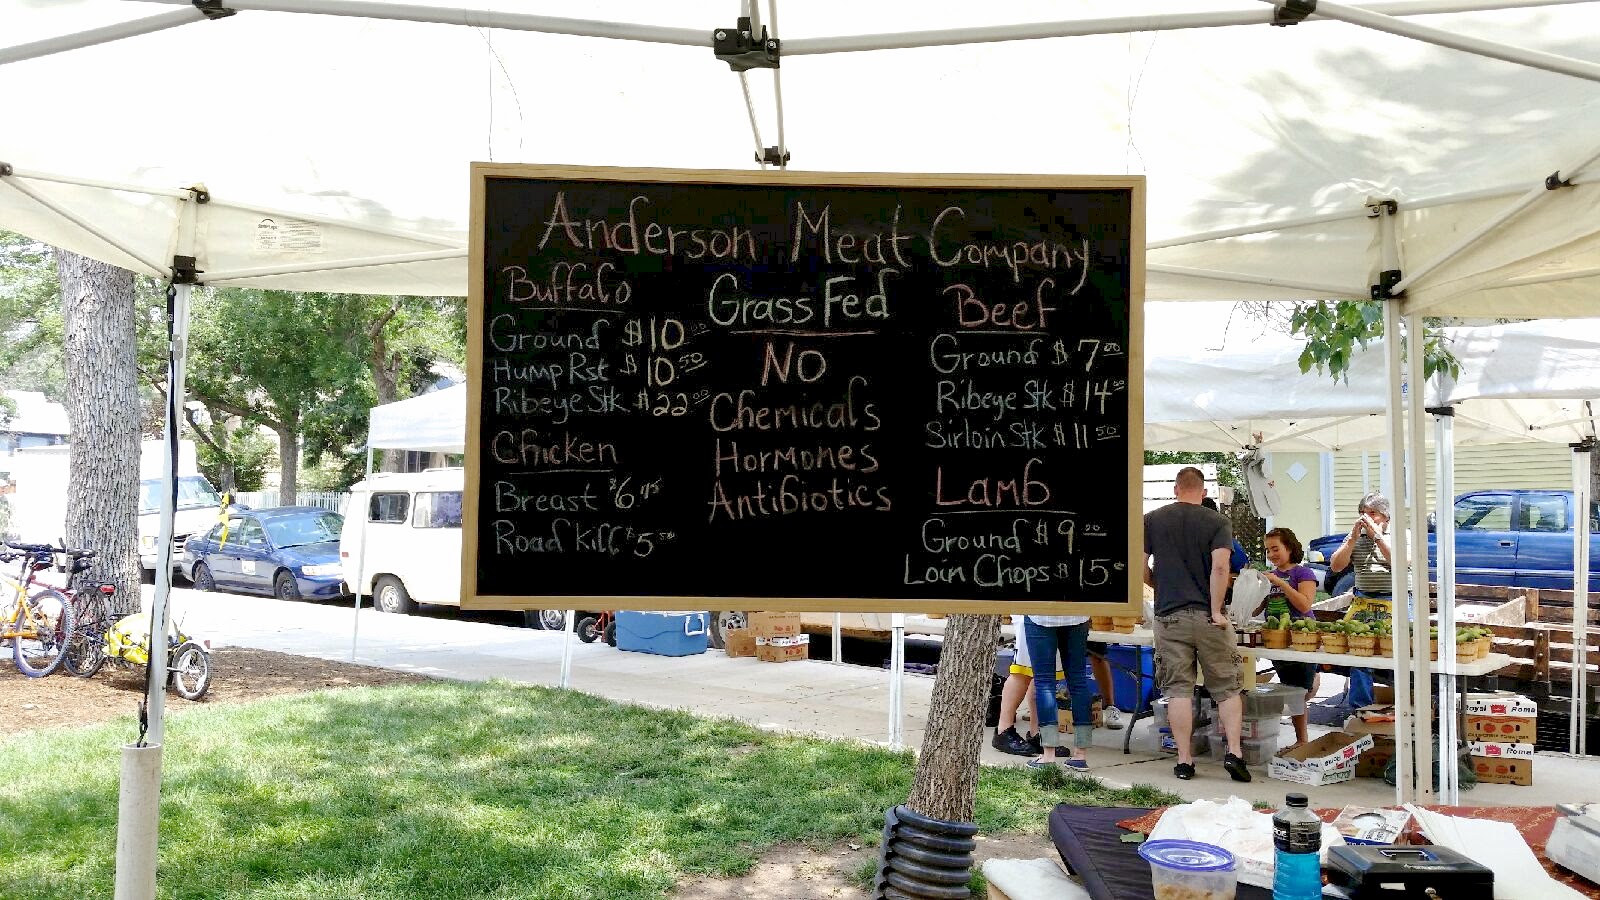 Anderson Meat Company
Buffalo
Ground $10.00
Hump Rst $10.50
Ribeye Stk $22.00
Chicken
Breast $6.75
Road Kill $5.50
Grass Fed
NO
Chemicals
Hormones
Antibiotics
Beef
Ground $7.00
Ribeye Stk $14.00
Sirloin Stk $11.50
Lamb
Ground $9.00
Loin Chops $15.00
Royal Roma
Roma